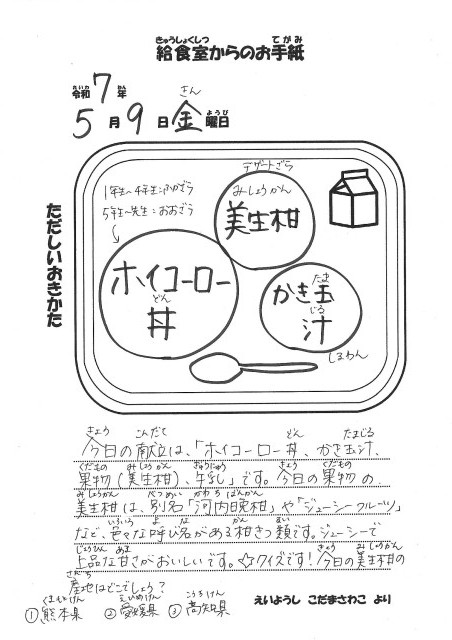 給食室からのお手紙
令和7年
5月9日金曜日
ただしいおきかた
1年生~4年生:ふかざら
5年生~先生:おおざら
デザートざら
美生柑
ホイコーロー
丼
かき玉
汁
しるわん
今日の献立は、「ホイコーロー丼、かき玉汁、
果物(美生柑)、牛乳」です。今日の果物の
美生柑は、別名「河内晩柑」や「ジューシーフルーツ」
など、色々な呼び名がある柑きつ類です。ジューシーで
上品な甘さがおいしいです。☆クイズです!今日の美生柑の
産地はどこでしょう?
①熊本県 ②愛媛県 ③高知県
えいようし こだまさわこ より